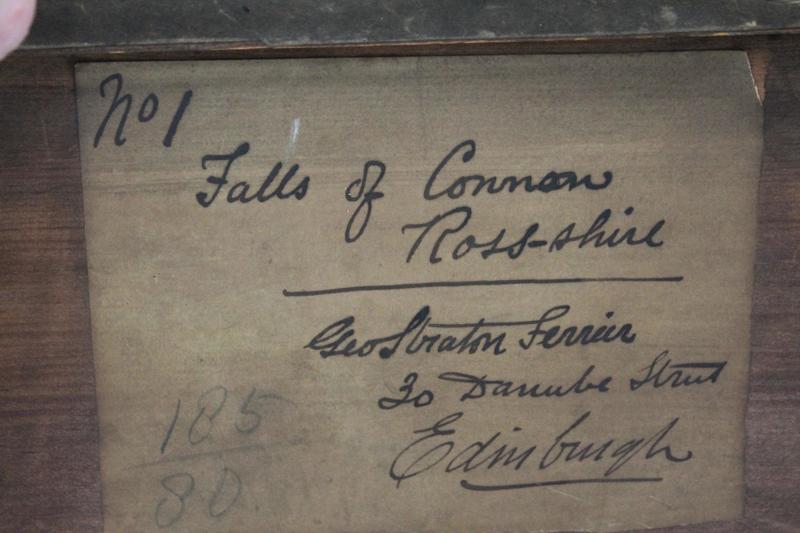 No 1
Falls of Connon
Ross-shire
Geo Straton Ferrier
30 Danube Street
Edinburgh
185
80